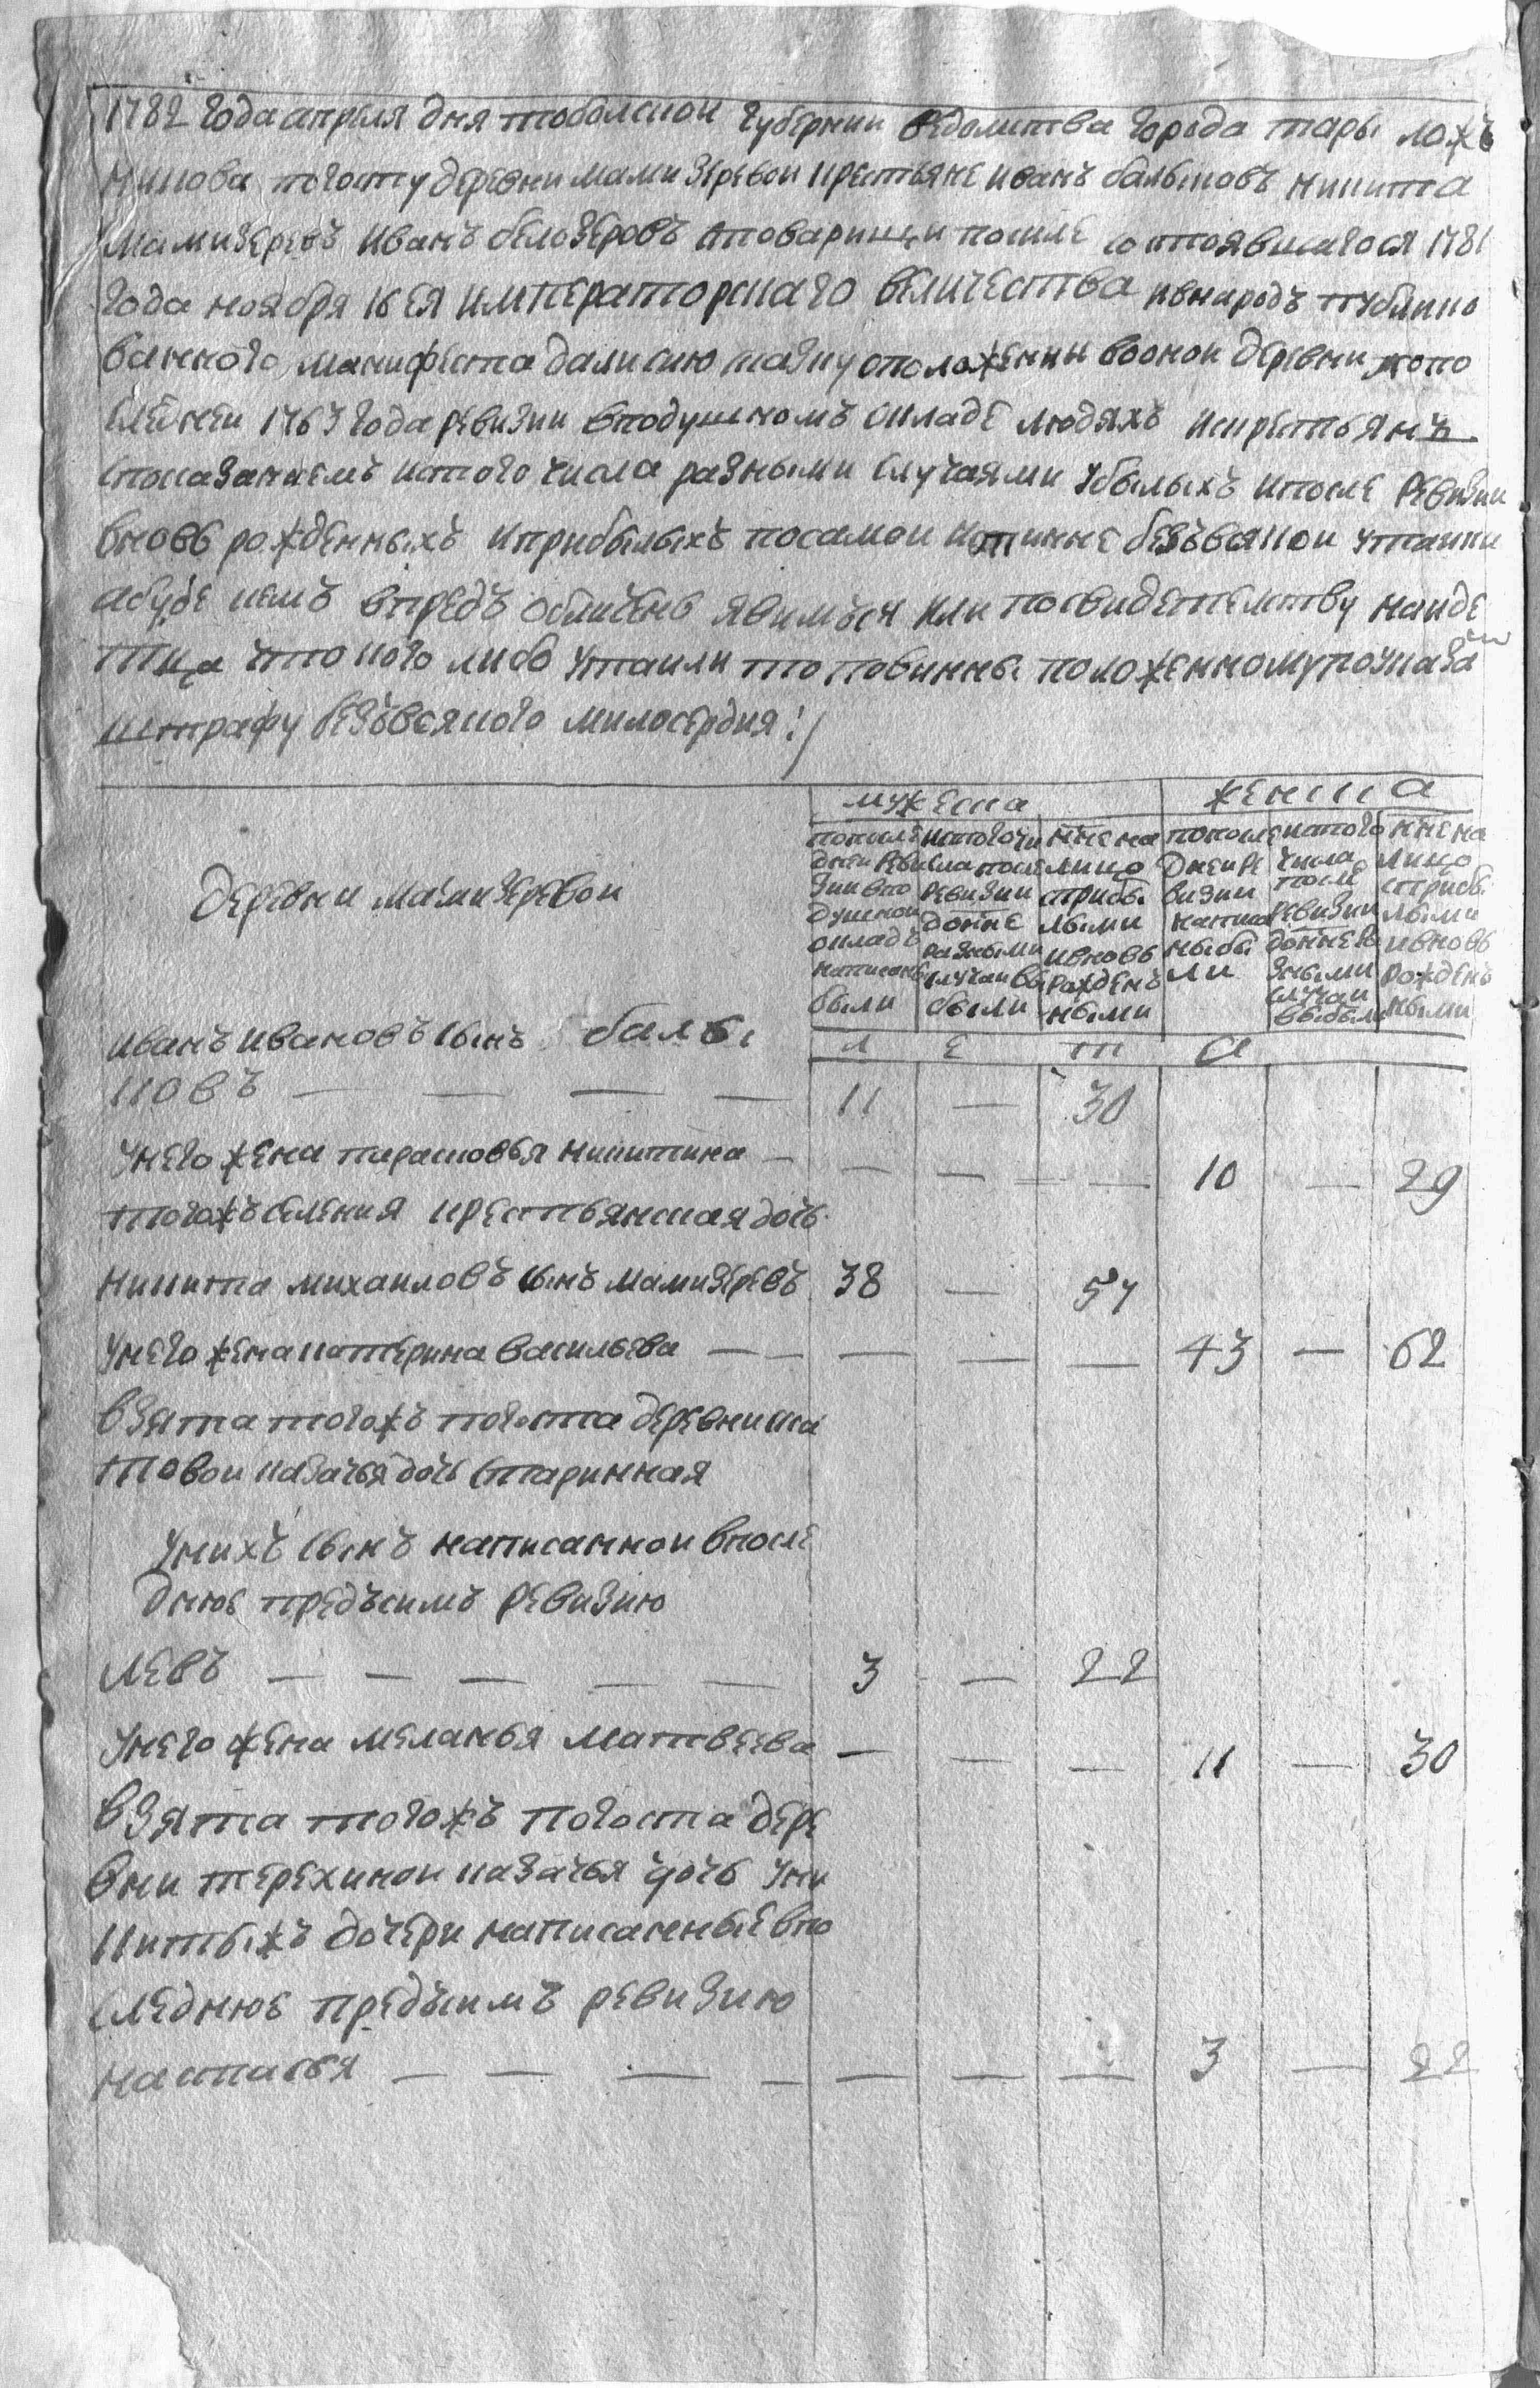 1782 года апреля дня тоболской губернии ведомства города тары ложъ
никова погосту деревни мамизеревои крестьяне иванъ балыковъ никита
мамизеревъ иванъ белозеровъ стоварищи после состоявшагося 1781
года ноября 16 ея императорскаго величества ивнародъ публико
ванного манифеста дали сию скаску оположении воонои деревни попо
следнеи 1763 года ревизии вподушномъ окладе людяхъ икрестьянъ
споказаниемъ истого числа разными случаями убылыхъ ипосле ревизии
вновь рожденныхъ иприбылыхъ посамои истинне безъвсякои утаики
абуде кемъ впредъ обличены явимъся или посвидетелству наиде
тца что кого либо утаили то повинны положенному поуказа
штрафу безъвсякого милосердия:/
мужеска
женска
попосле
днеи реви
зии впо
душнои
окладъ
написаны
были
истогочи
сла после
ревизии
доныне
разными
случаи вы
были
ныне на
лицо
сприбы
лыми
ивновь
рожденъ
ными
попосле
днеи ре
визии
написа
ны бы
ли
истого
числа
после
ревизии
доныне ра
зными
случаи
выбыли
ныне на
лицо
сприбы
лыми
ивновь
рожденъ
ными
деревни мамизеревои
л е т а
иванъ ивановъ сынъ балы
ковъ — — — — 11 — 30
унего жена парасковья никитина — — — — — 10 — 29
тогожъ селения крестьянская дочь
никита михаиловъ сынъ мамизеревъ 38 — 57
унего жена катерина васильева — — — — — 43 — 62
взята тогожъ погоста деревни
товои казачья дочь старинная
унихъ сынъ написаннои впосле
днюю предъсимъ ревизию
левъ — — — — — 3 — 22
унего жена меланья матвеева — — — 11 — 30
взята тогожъ погоста дере
вни терехинои казачья дочь уни
китыжъ дочери написанные впо
следнюю предъсимъ ревизию
настасья — — — — — — — 3 — 22